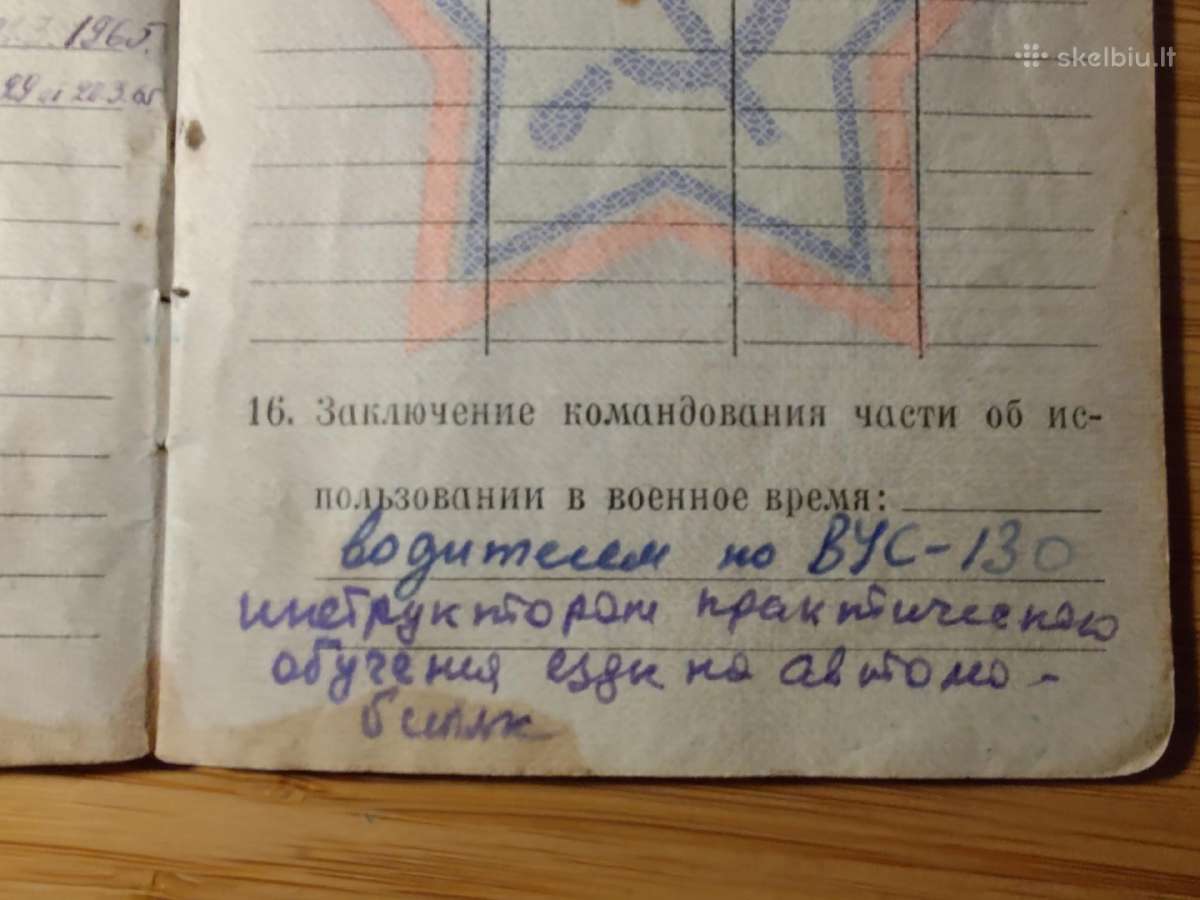 1965.
skelbiu.lt
16. Заключение командования части об ис-
пользовании в военное время:
водителем по ВУС-130
инструктором практического
обучения езды на автомо-
биле